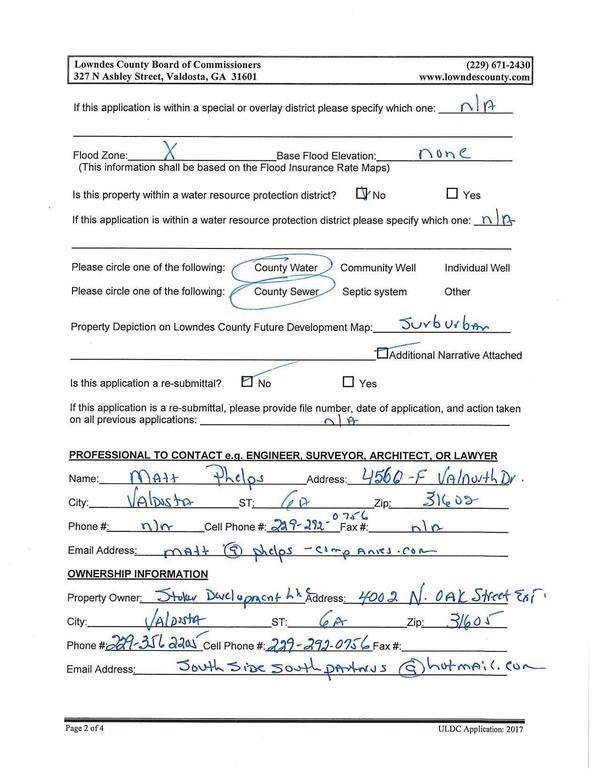 Lowndes County Board of Commissioners (229) 671-2430
327 N Ashley Street, Valdosta, GA 31601 www.lowndescounty.com
If this application is within a special or overlay district please specify which one: n/A
Flood Zone: X Base Flood Elevation: none
(This information shall be based on the Flood Insurance Rate Maps)
Is this property within a water resource protection district? ☑ No ☐ Yes
If this application is within a water resource protection district please specify which one: n/A
Please circle one of the following: County Water Community Well Individual Well
Please circle one of the following: County Sewer Septic system Other
Property Depiction on Lowndes County Future Development Map: Surburban
Additional Narrative Attached
Is this application a re-submittal? ☑ No ☐ Yes
If this application is a re-submittal, please provide file number, date of application, and action taken
on all previous applications: n/A
PROFESSIONAL TO CONTACT e.g. ENGINEER, SURVEYOR, ARCHITECT, OR LAWYER
Name: Matt Phelps Address: 4560-F Valnorth Dr.
City: Valdosta ST: GA Zip: 31602
Phone #: n/a Cell Phone #: 229-292-0756 Fax #: n/a
Email Address: matt @ phelps-companies.com
OWNERSHIP INFORMATION
Property Owner: Stoker Development LLC Address: 4002 N. Oak Street Ext.
City: Valdosta ST: GA Zip: 31605
Phone #: 229-356 2205 Cell Phone #: 229-292-0756 Fax #:
Email Address: South Side South partners @hotmail.com
Page 2 of 4 ULDC Application: 2017